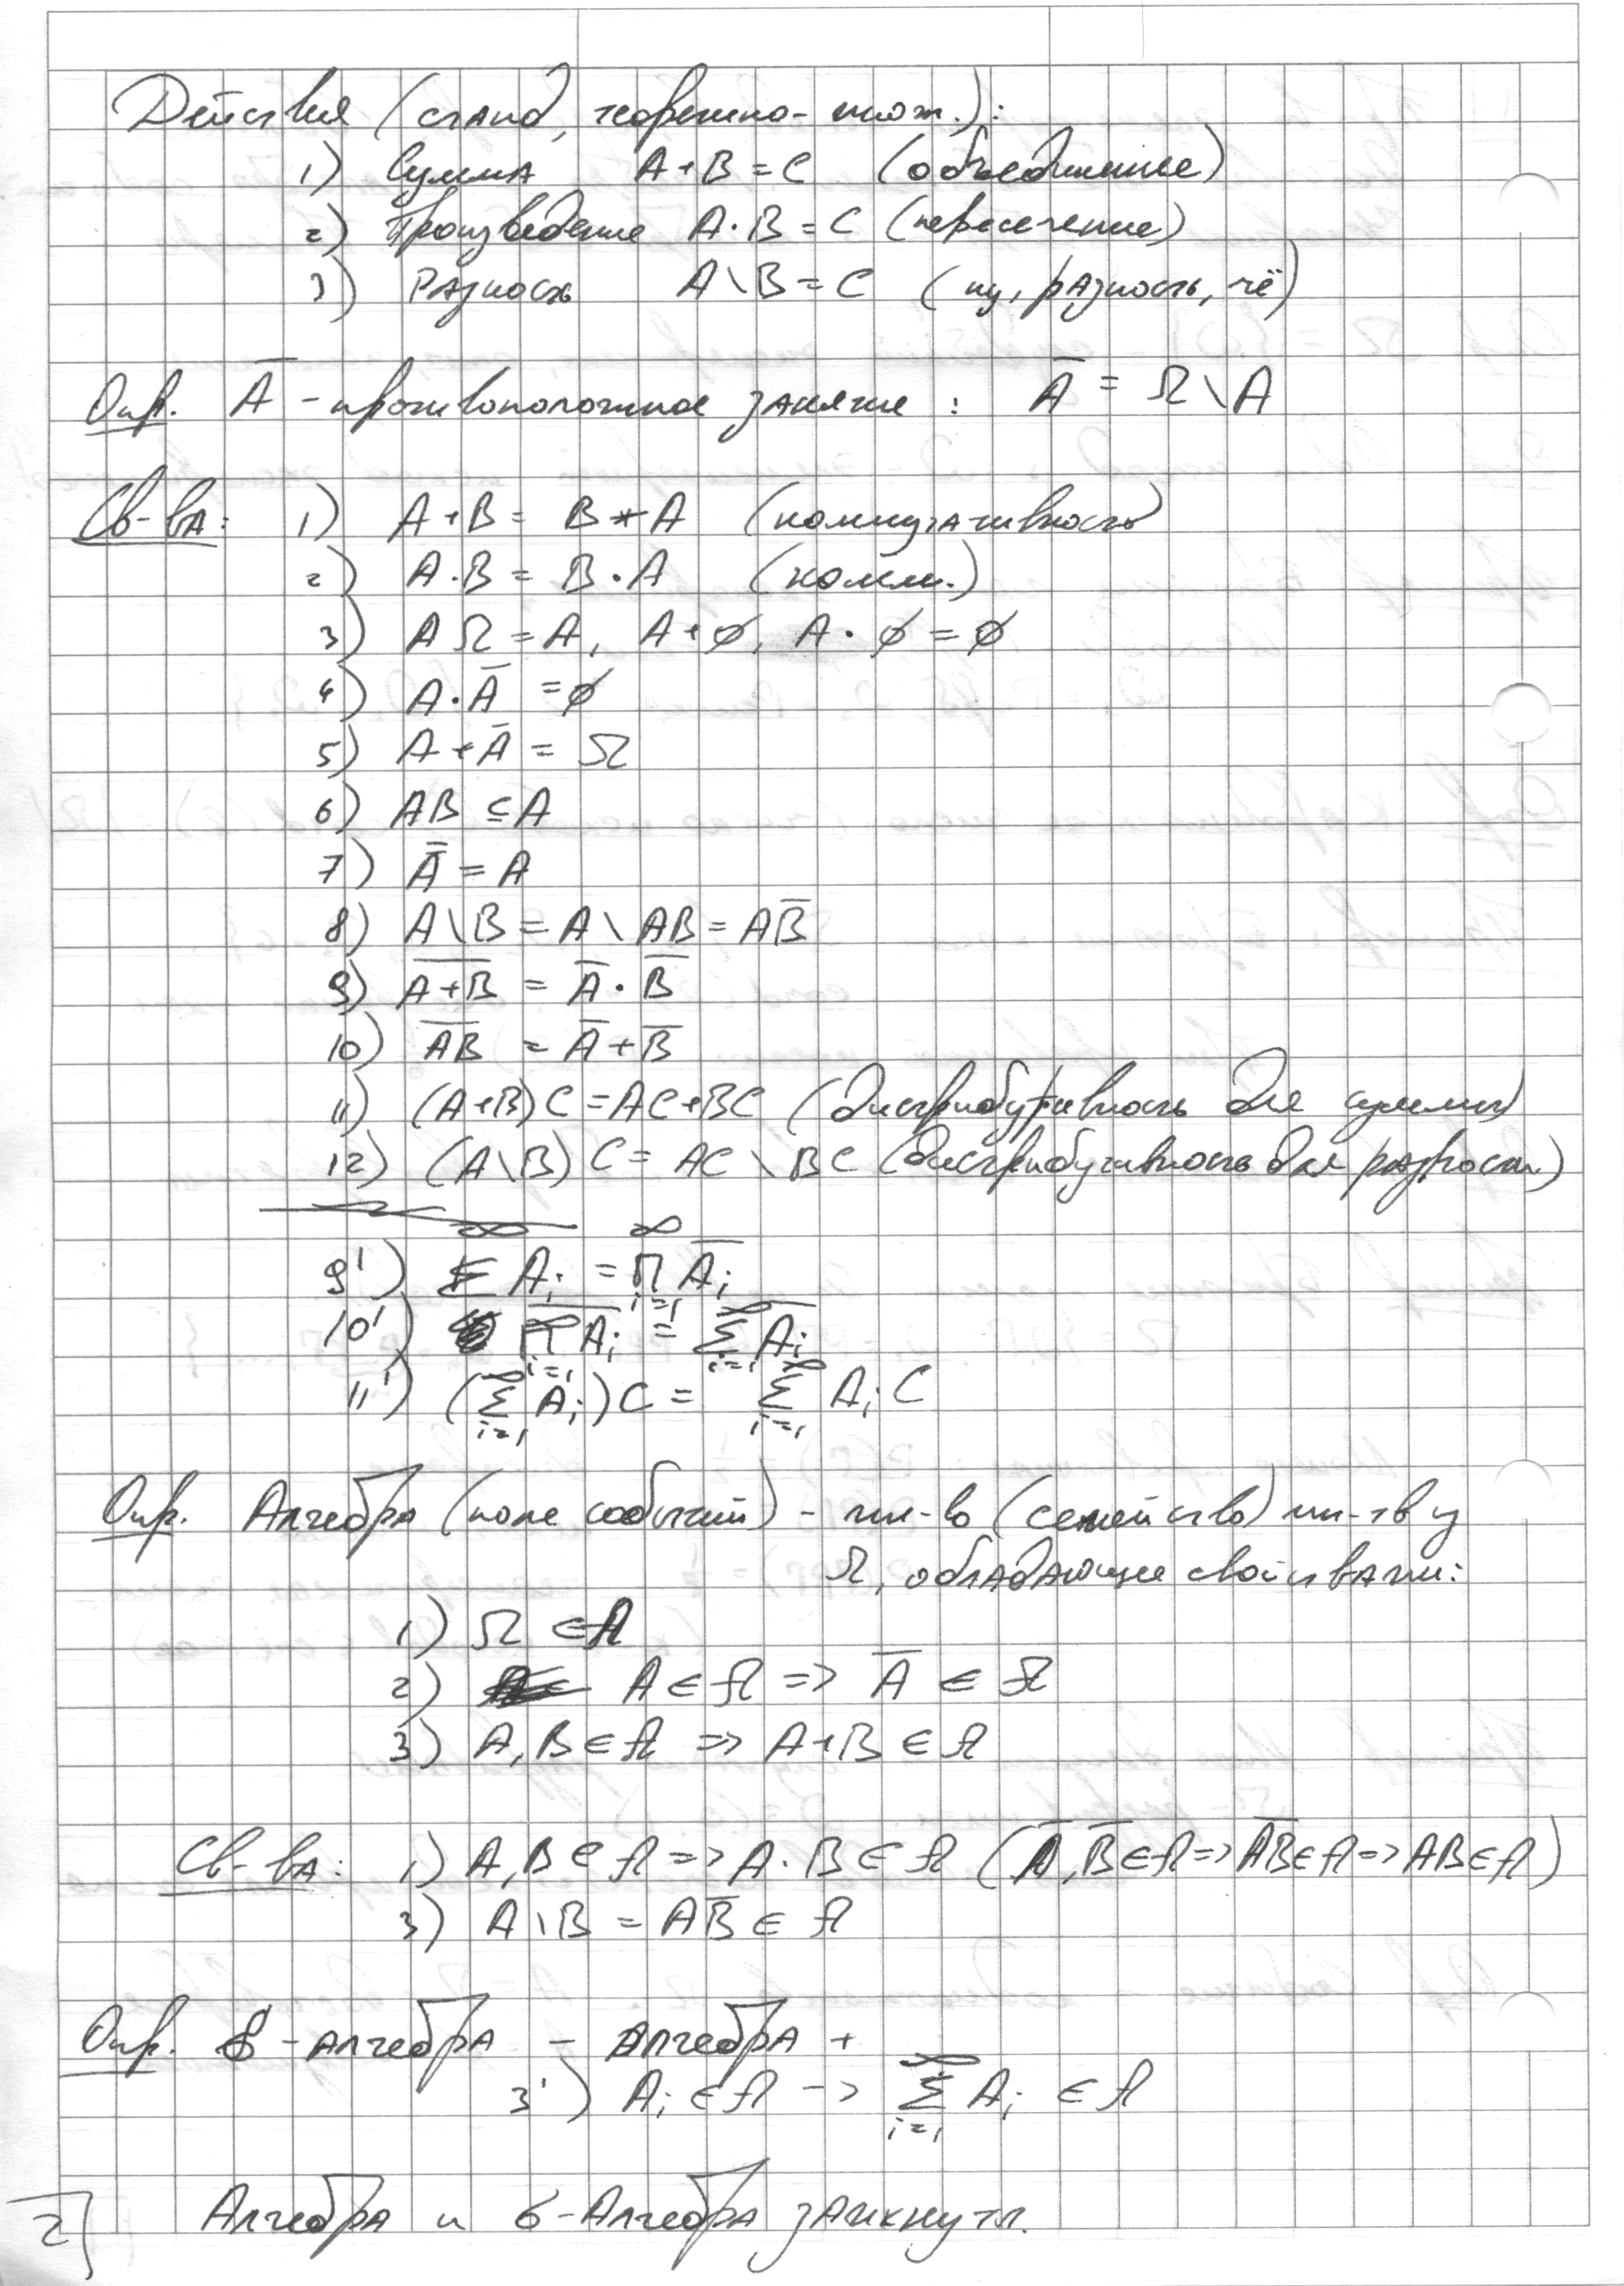 Действия (станд, теоретико-множ.):
1) Сумма A+B=C (объединение)
2) Произведение A·B=C (пересечение)
3) Разность A\B=C (ну, разность, чё)
Опр. A̅ - противоположное занятие : A̅ = Ω\A
Св-ва: 1) A+B = B+A (коммутативность)
2) A·B = B·A (комм.)
3) AΩ = A, A+∅, A·∅ = ∅
4) A·A̅ = ∅
5) A+A̅ = Ω
6) AB ⊆ A
7) A̿ = A
8) A\B = A\AB = AB̅
9) \overline{A+B} = A̅·B̅
10) \overline{AB} = A̅+B̅
11) (A+B)C=AC+BC (дистрибутивность для суммы)
12) (A\B)C = AC\BC (дистрибутивность для разности)
9') \overline{∑^∞ A_i} = ∏_{i=1}^∞ A̅_i
10') \overline{∏_{i=1}^∞ A_i} = ∑_{i=1}^∞ A̅_i
11') (∑_{i=1}^∞ A_i)C = ∑_{i=1}^∞ A_i C
Опр. Алгебра (поле событий) - мн-во (семейство) мн-тв из
Ω, обладающие свойствами:
1) Ω ∈ 𝒜
2) A ∈ 𝒜 => A̅ ∈ 𝒜
3) A,B ∈ 𝒜 => A+B ∈ 𝒜
Св-ва: 1) A,B ∈ 𝒜 => A·B ∈ 𝒜 (A̅,B̅ ∈ 𝒜 => \overline{AB} ∈ 𝒜 => AB ∈ 𝒜)
3) A\B = AB̅ ∈ 𝒜
Опр. σ-алгебра - Алгебра +
3') A_i ∈ 𝒜 -> ∑_{i=1}^∞ A_i ∈ 𝒜
Алгебра и σ-Алгебра замкнуты.
2